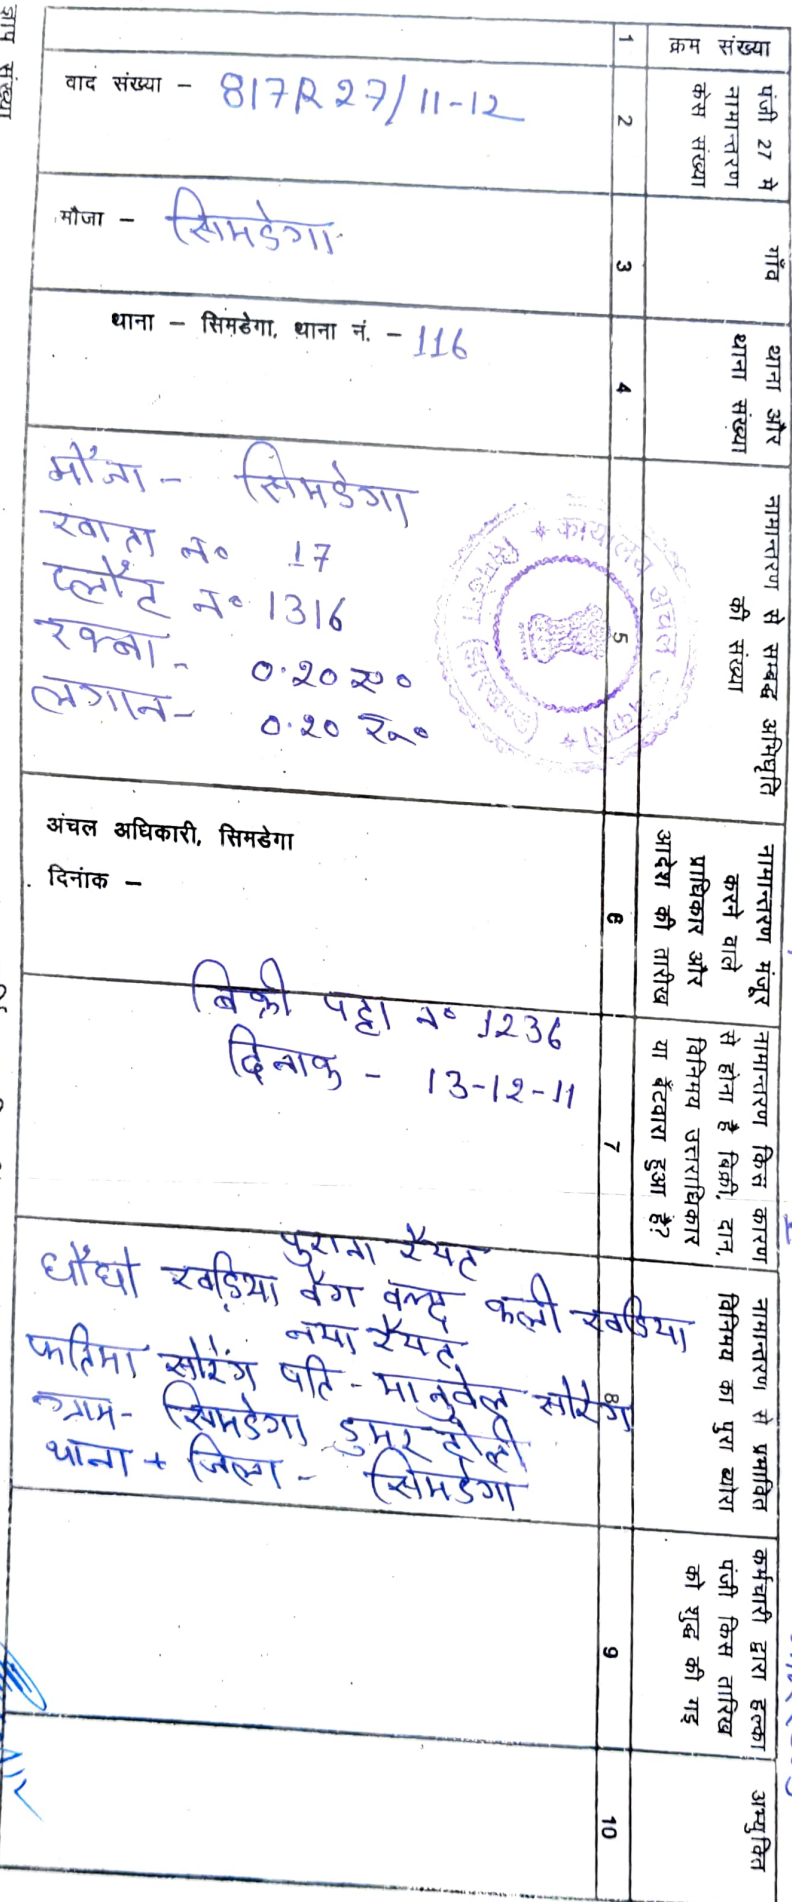 क्रम संख्या
1
पंजी 27 मे
नामान्तरण
केस संख्या
2
वाद संख्या - 817R27/11-12
गाँव
3
मौजा - सिमडेगा
थाना और
थाना संख्या
4
थाना - सिमडेगा, थाना नं. - 116
नामान्तरण से सम्बद्ध अभिधृति
की संख्या
5
मौजा - सिमडेगा
खाता न० 17
प्लौट न० 1316
रकबा - 0.20 ए०
लगान - 0.20 रू०
नामान्तरण मंजूर
करने वाले
प्राधिकार और
आदेश की तारीख
6
अंचल अधिकारी, सिमडेगा
दिनांक -
नामान्तरण किस कारण
से होता है बिक्री, दान,
विनिमय उत्तराधिकार
या बँटवारा हुआ है?
7
बिक्री पट्टा न० 1236
दिनाक - 13-12-11
नामान्तरण से प्रभावित
विनिमय का पुरा ब्योरा
8
पुराना रैयत
धौंधो खड़िया वल्द कली खडिया
नया रैयत
फतिमा सोरेंग पति - मानुवेल सोरेंग
ग्राम - सिमडेगा डुमर टोली
थाना + जिला - सिमडेगा
कर्मचारी द्वारा हल्का
पंजी किस तारिख
को शुद्ध की गइ
9
अभ्युक्ति
10
ज्ञाप संख्या
कार्यालय अंचल
सिमडेगा